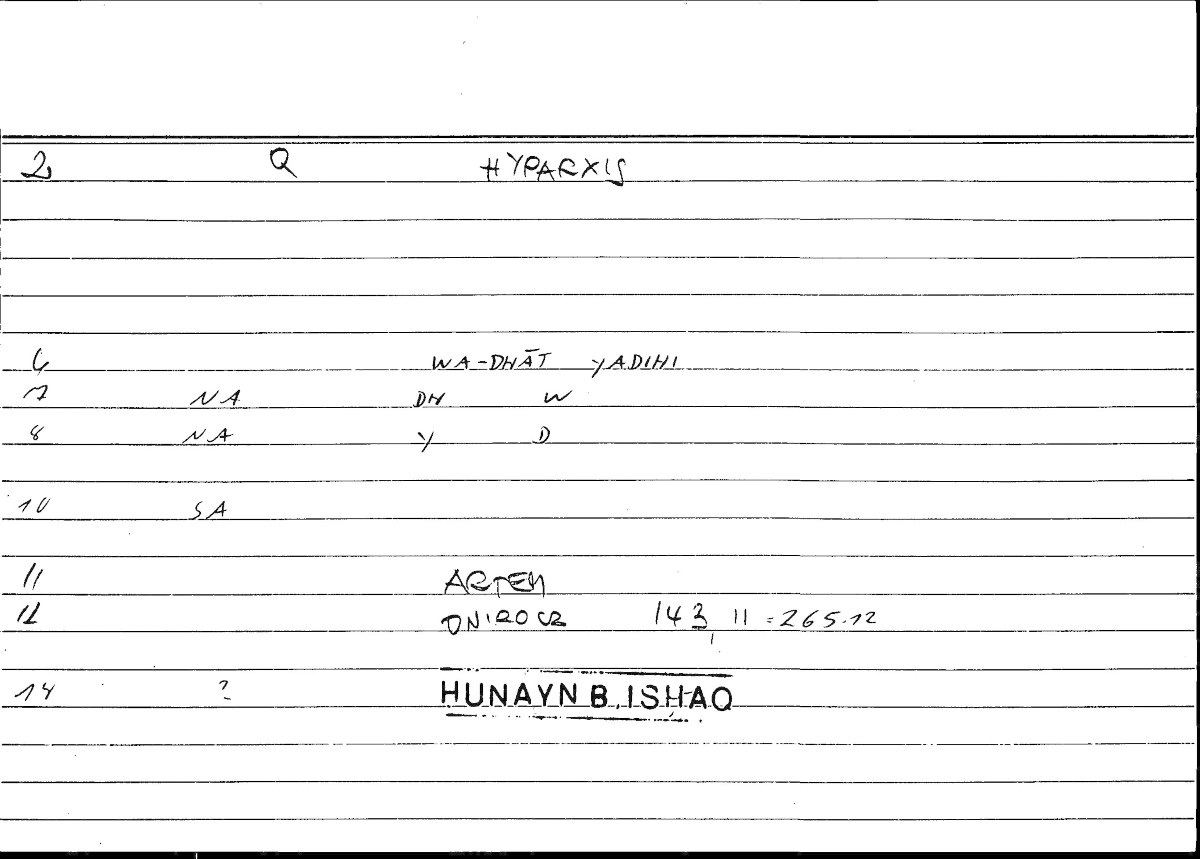 2 Q HYPARXIS
6 WA-DHĀT YADIHI
7 NA DH W
8 NA Y D
10 SA
11 ARTEM
12 ONIROCR 143, 11 = 265.12
14 ? HUNAYN B. ISHAQ